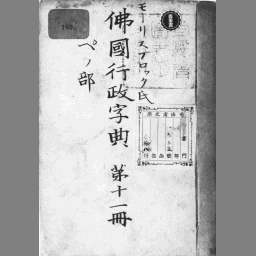 モーリスブロック氏
佛國行政字典 第十一冊
ペノ部